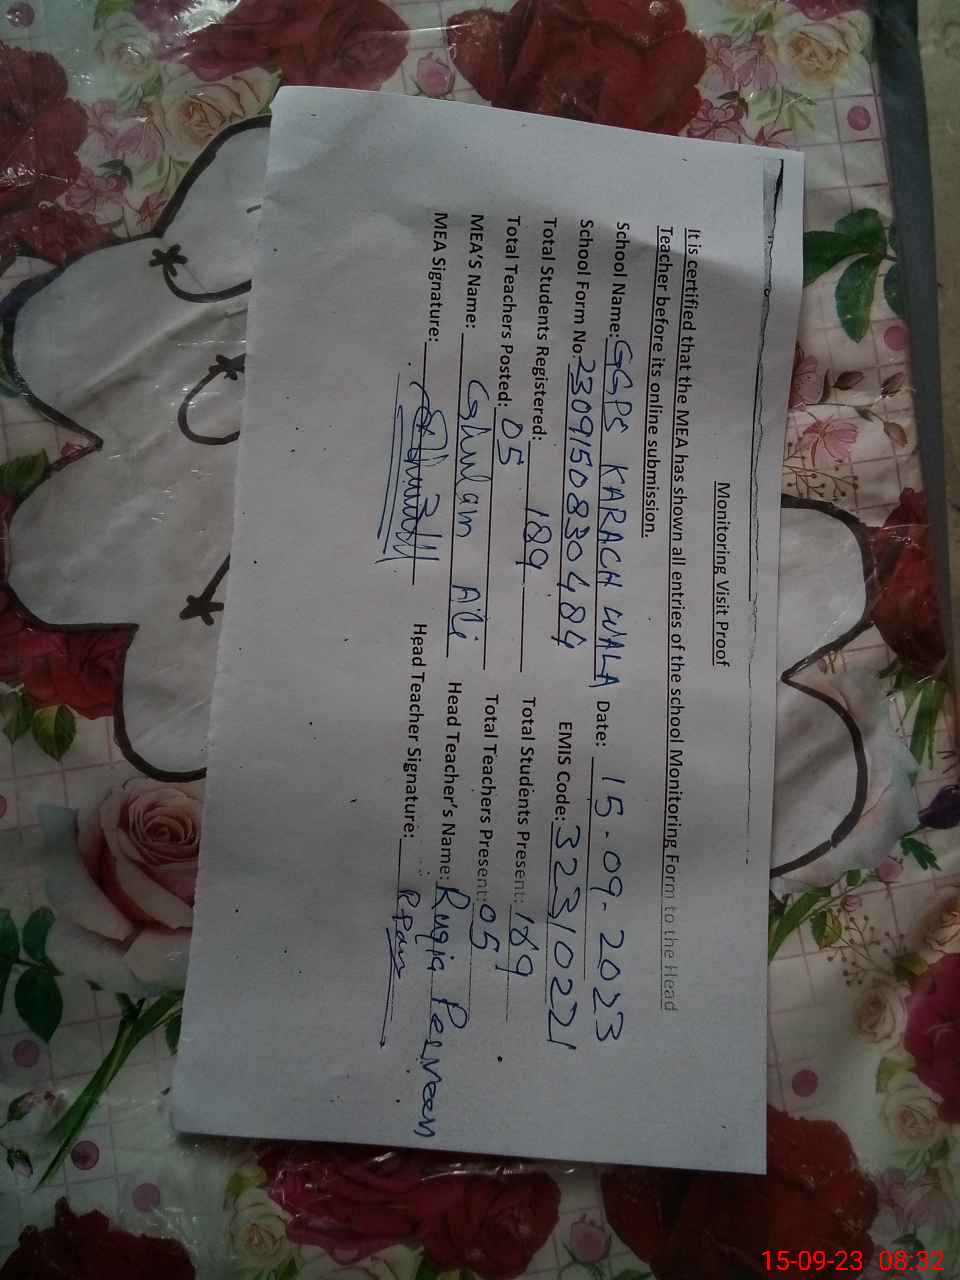 Monitoring Visit Proof
It is certified that the MEA has shown all entries of the school Monitoring Form to the Head
Teacher before its online submission.
School Name: GGPS KARACH WALA Date: 15-09-2023
School Form No: 2309150830484 EMIS Code: 32310221
Total Students Registered: 189 Total Students Present: 189
Total Teachers Posted: 05 Total Teachers Present: 05
MEA'S Name: Ghulam Ali Head Teacher's Name: Ruqia Perveen
MEA Signature: Head Teacher Signature:
15-09-23 08:32